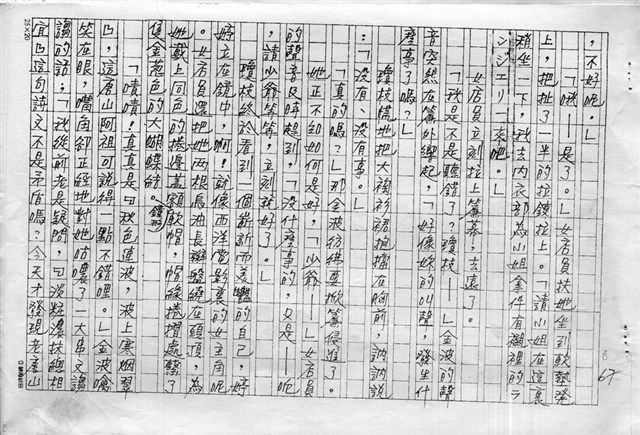 ，不好呢。」
「哦——是了。」女店員扶她坐到軟墊凳
上，把扯了一半的拉鏈拉上。「請小姐在這裏
稍坐一下，我去内衣部為小姐拿件有襯裡的ラ
ンジェリー來吧。」
女店員立刻拉上簾幕，去了。
「我是不是聽錯了？瓊枝——」金波的聲
音突然在簾外響起，「好像妳的叫聲，發生什
麼事了嗎？」
瓊枝慌忙地把大襯衫裙擋在胸前，訥訥說
：「沒有、沒有事。」
「真的嗎？」那金波彷彿要掀簾侵進了。
她正不知如何是好，「少爺——」女店員
的聲音及時趕到，「沒什麼事的，只是——呃
，請少爺等等，立刻就好了。」
瓊枝終於看到一個嶄新而美豔的自己，好
好立在鏡中，啊！就像西洋電影裏的女主角呢
。女店員還把她兩根烏油長辮盤繞在頭頂，為
她戴上同色的捲邊蓋額軟帽，帽緣捲摺處繫了
隻金蔥色的大蝴蝶結。
「嘖嘖！真真是『秋色連波，波上寒烟翠
』，這唐山阿祖可說得一點不錯哩。」金波噙
笑在眼，嘴角卻正經地對她咕噥了一大串又讀
詩的話；「我從前老是疑問，『淡粧濃抹總相
宜』這句詩文不是矛盾嗎？今天才發現老唐山
67
25×20